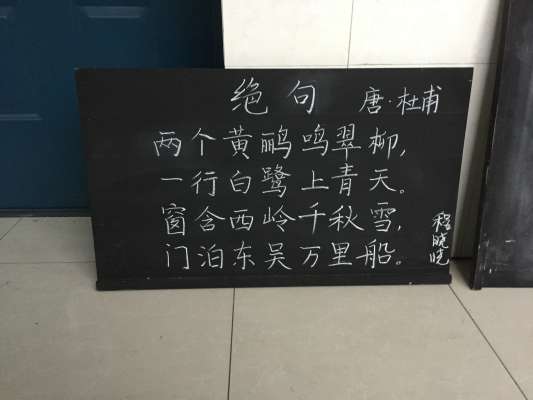 绝句 唐·杜甫
两个黄鹂鸣翠柳,
一行白鹭上青天。
窗含西岭千秋雪,
门泊东吴万里船。
程晓晓